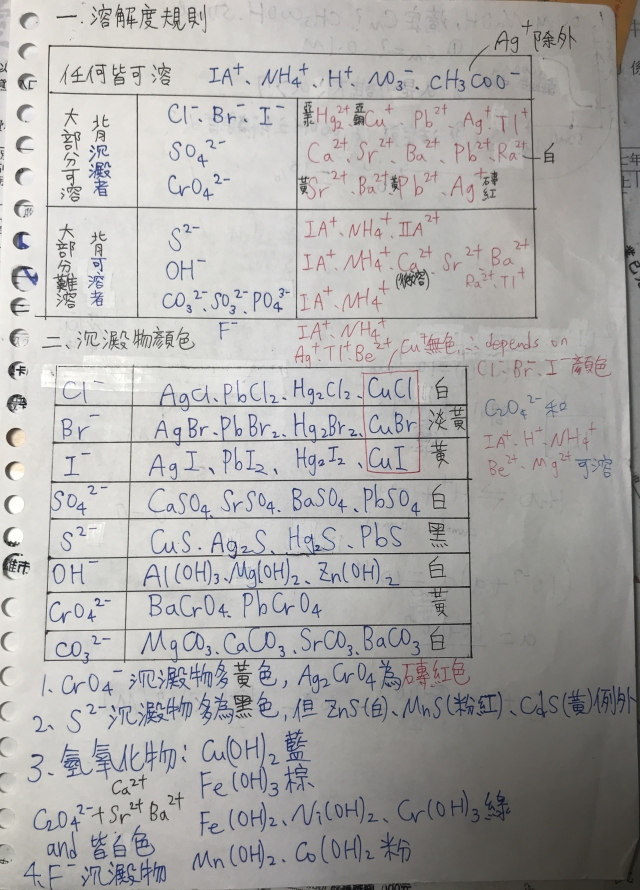 一.溶解度規則
Ag⁺除外
任何皆可溶 IA⁺、NH₄⁺、H⁺、NO₃⁻、CH₃COO⁻
大部分可溶 背沉澱者
Cl⁻、Br⁻、I⁻ 亞汞Hg₂²⁺ 亞銅Cu⁺、Pb²⁺、Ag⁺、Tl⁺
SO₄²⁻ Ca²⁺、Sr²⁺、Ba²⁺、Pb²⁺、Ra²⁺ 白
CrO₄²⁻ 黃Sr²⁺、Ba²⁺黃Pb²⁺、Ag⁺磚紅
大部分難溶 背可溶者
S²⁻ IA⁺、NH₄⁺、IIA²⁺
OH⁻ IA⁺、NH₄⁺、Ca²⁺ Sr²⁺ Ba²⁺
(微溶) Ra²⁺、Tl⁺
CO₃²⁻、SO₃²⁻、PO₄³⁻ IA⁺、NH₄⁺
F⁻ IA⁺、NH₄⁺
Ag⁺、Tl⁺、Be²⁺
二、沉澱物顏色
Cu⁺無色,∴depends on
Cl⁻、Br⁻、I⁻顏色
Cl⁻ AgCl、PbCl₂、Hg₂Cl₂、CuCl 白
Br⁻ AgBr、PbBr₂、Hg₂Br₂、CuBr 淡黃
I⁻ AgI、PbI₂、Hg₂I₂、CuI 黃
C₂O₄²⁻ 和
IA⁺、H⁺、NH₄⁺
Be²⁺、Mg²⁺ 可溶
SO₄²⁻ CaSO₄、SrSO₄、BaSO₄、PbSO₄ 白
S²⁻ CuS、Ag₂S、Hg₂S、PbS 黑
OH⁻ Al(OH)₃、Mg(OH)₂、Zn(OH)₂ 白
CrO₄²⁻ BaCrO₄、PbCrO₄ 黃
CO₃²⁻ MgCO₃、CaCO₃、SrCO₃、BaCO₃ 白
1. CrO₄⁻沉澱物多黃色,Ag₂CrO₄為磚紅色
2. S²⁻沉澱物多為黑色,但 ZnS(白)、MnS(粉紅)、CdS(黃)例外
3. 氫氧化物: Cu(OH)₂ 藍
Fe(OH)₃ 棕
Fe(OH)₂、Ni(OH)₂、Cr(OH)₃ 綠
Mn(OH)₂、Co(OH)₂ 粉
Ca²⁺
C₂O₄²⁻+Sr²⁺ Ba²⁺
and 皆白色
4. F⁻沉澱物